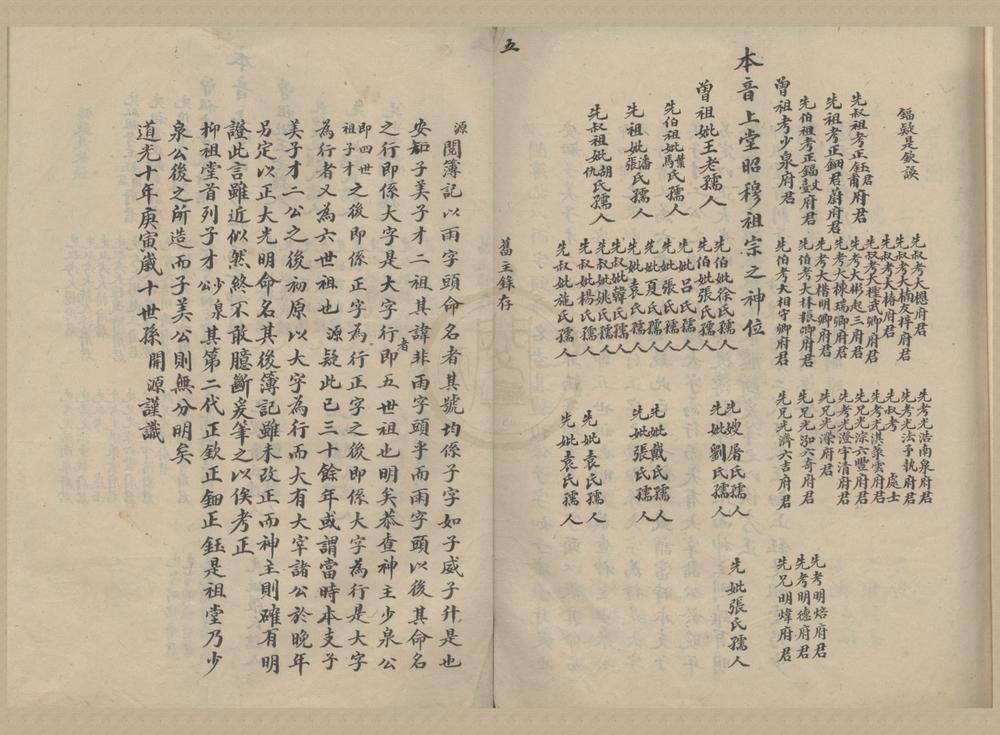 鍢疑是欽誤
先叔祖考正鈺君甫府君
先祖考正鈿君蔚府君
先伯祖考正鍢鼓府君
曾祖考少泉府君
本音上堂昭穆祖宗之神位
曾祖妣王老孺人
先伯祖妣葉馬氏孺人
先祖妣潘張氏孺人
先叔祖妣胡仇氏孺人
先叔考大樬府君
先叔考大楠友梓府君
先叔考大椿府君
先叔考大樫武卿府君
先考大彬起三府君
先考大棟瑞卿府君
先考大楷明卿府君
先伯考大林振卿府君
先伯考大相守卿府君
先伯妣徐氏孺人
先伯妣張氏孺人
先妣呂氏孺人
先妣張氏孺人
先妣夏氏孺人
先妣袁氏孺人
先叔妣韓氏孺人
先叔妣姚氏孺人
先叔妣楊氏孺人
先叔妣施氏孺人
先考光浩南泉府君
先考光法子執府君
先叔考處士
先考光淇菉雲府君
先兄光淙六豐府君
先考光澄宇清府君
先兄光濚府君
先兄光泖六奇府君
先兄光濟六吉府君
先嫂屠氏孺人
先妣劉氏孺人
先妣戴氏孺人
先妣張氏孺人
先妣袁氏孺人
先妣袁氏孺人
先考明焙府君
先考明德府君
先兄明煒府君
先妣張氏孺人
舊主錄存
五
源閱簿記以雨字頭命名者其號均係子字如子威子升是也
安知子美子才二祖其諱非雨字頭乎而雨字頭以後其命名
之行即係大字是大字行者即五世祖也明矣恭查神主少泉公
即四世祖子才之後即係正字為行正字之後即係大字為行是大字
為行者又為六世祖也源疑此已三十餘年或謂當時本支子
美子才二公之後初原以大字為行而大有大宰諸公於晚年
另定以正大光明命名其後簿記雖未改正而神主則確有明
證此言雖近似然終不敢臆斷爰筆之以俟考正
抑祖堂首列子才公少泉其第二代正欽正鈿正鈺是祖堂乃少
泉公後之所造而子美公則無分明矣
道光十年庚寅歲十世孫開源謹識